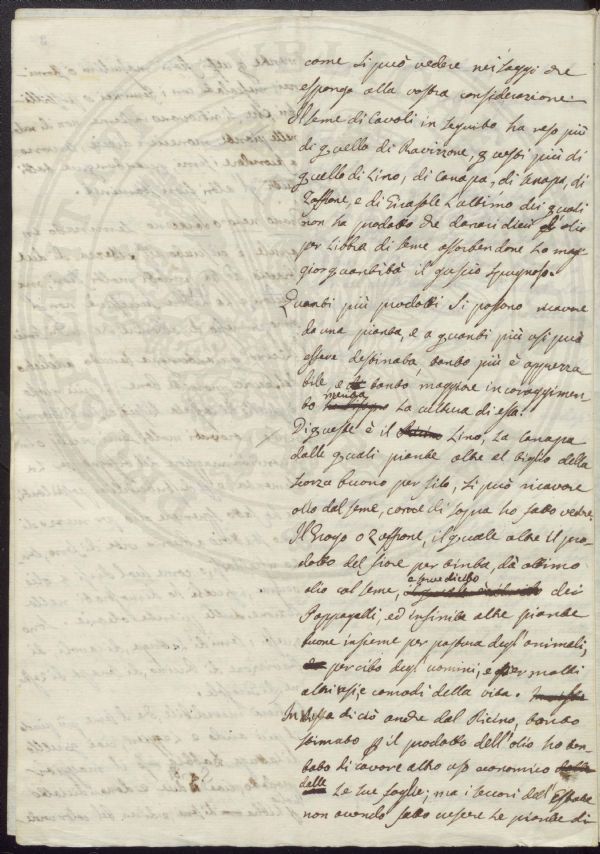 come si può vedere nei saggi che
espongo alla vostra considerazione.
Il seme di Cavoli in seguito ha reso più
di quello di Ravizzone, e questi più di
quello di Lino, di Canapa, di
Zaffrone, e di Girasole L'ultimo dei quali
non ha prodotto che danari dieci d'olio
per Libbra di seme assorbendone La mag-
gior quantità il guscio spugnoso.
Quanti più prodotti si possono ricavare
da una pianta, e a quanti più usi può
essere destinata, tanto più è apprezza
bile, e tanto maggiore incoraggimen-
to merita La cultura di essa.
Di queste è il Lino, La Canapa
dalle quali piante oltre al tiglio della
scorza buono per filo, si può ricavare
olio dal seme, come di sopra ho fatto vedere.
Il Grogo o Zaffrone, il quale oltre il pro-
dotto del fiore per tinta, dà ottimo
olio col seme, dei
Pappagalli, ed infinite altre piante
buone insieme per pastura degl'animali,
per cibo degl'uomini, e per molti
altri usi, e comodi della vita.
In vista di ciò anche dal Ricino, tanto
stimato il prodotto dell'olio ho ten-
tato di cavare altro uso economico
delle Le sue foglie; ma i seccori dell'Estate
non avendo fatto crescere Le piante di